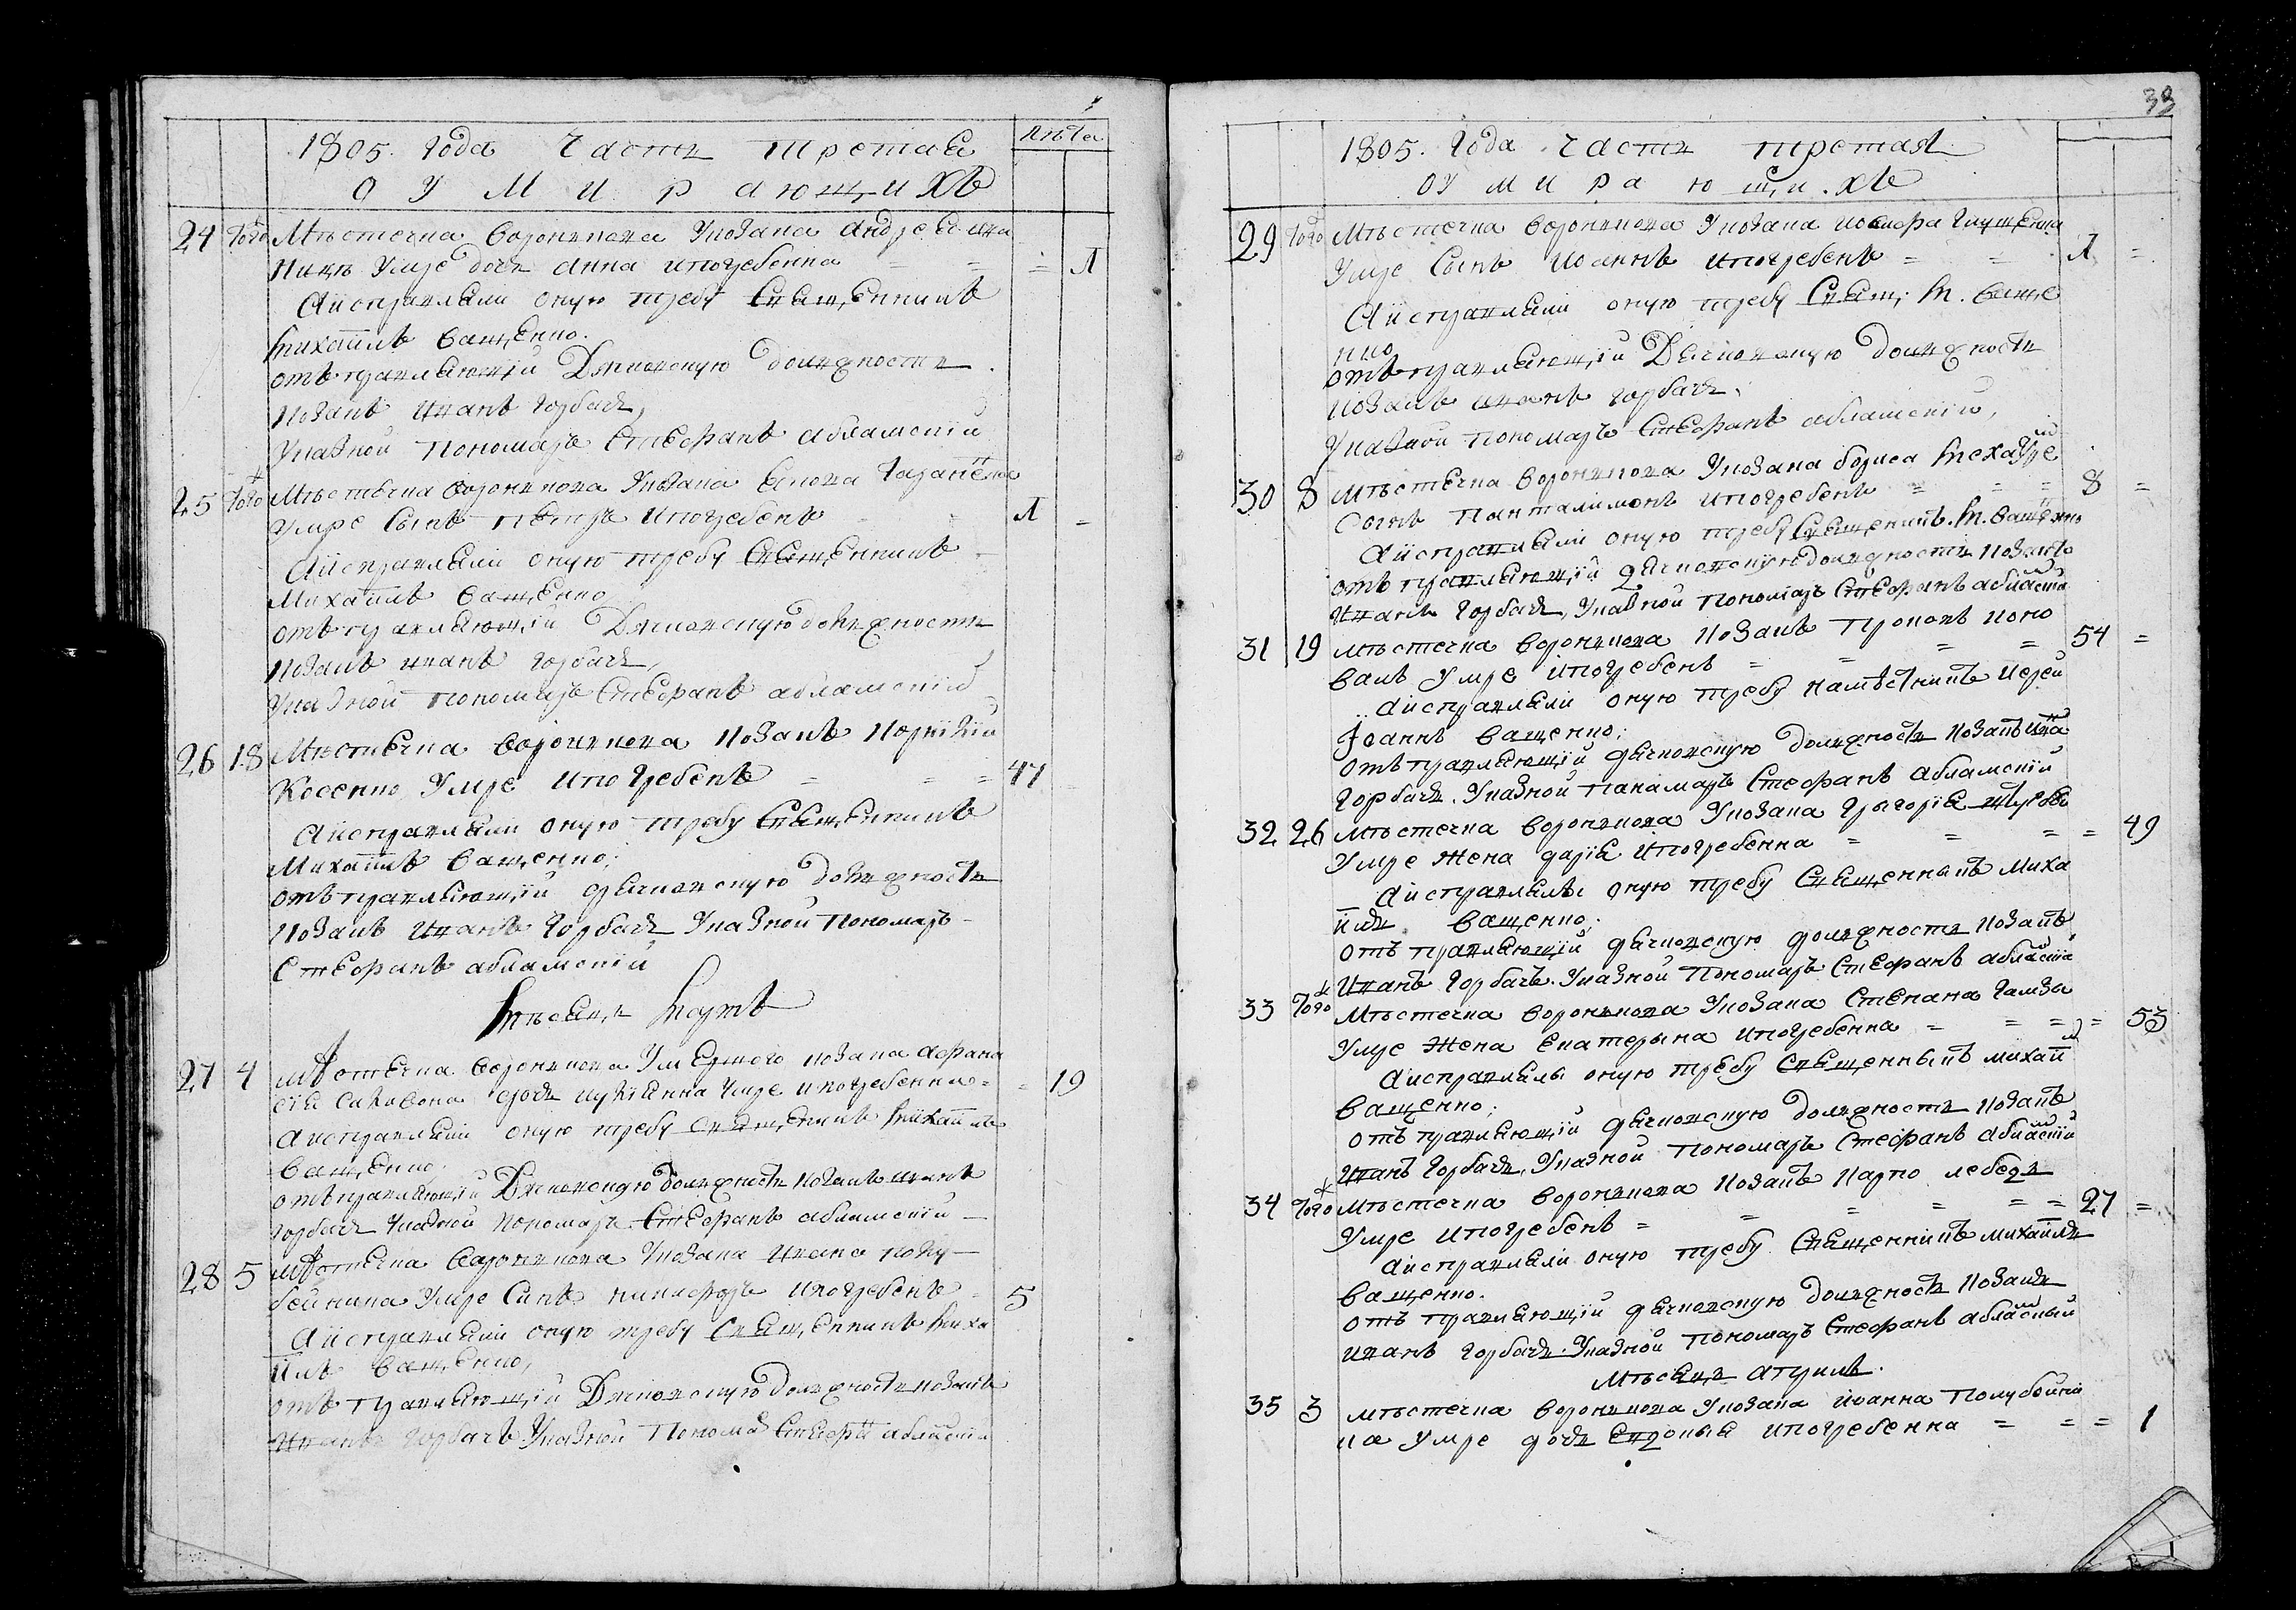 лѣта
1805. Года Часть третая
О У М И Р а ю щ и хъ
24 Того Мѣстечка Воронкова Укозака Андрея
умре дочь Анна ипогребенна = = = Л
Аисправляли оную требу Священникъ
Михаилъ Ващенко.
отъправляющїй Дячковскую должность
Козакъ Иванъ Горбачь,
Указной Пономаръ Стефанъ абламскїй
25 Того Мѣстечка Воронкова Укозака
Умре Сынъ Петръ Ипогребенъ Л =
Аисправляли оную требу Священникъ
Михаилъ Ващенко
отъправляющїй Дячковскую должность
Козакъ иванъ Горбачь,
Указной пономаръ Стефанъ абламскїй
26 18 Мѣстечка Воронкова Козакъ
Косенко Умре Ипогребенъ = = = 47
Аисправляли оную требу Священникъ
Михаилъ Ващенко;
отъправляющїй дячковскую должность
Козакъ Иванъ Горбачь Указной Пономаръ
Стефанъ абламскїй
Мѣсяць Мартъ
27 4 мѣстечка Воронкова Умершого козака Афана
сїя дочь Умре ипогребенна = = 19
Аисправляли оную требу Священикъ Михаилъ
Ващенко.
отъправляющїй Дячковскую должность Козакъ иванъ
Горбачь Указной Пономаръ Стефанъ абламскїй
28 5 мѣстечка Воронкова Укозака Ивана полу
бойчика Умре Синъ никифоръ Ипогребенъ 5
Аисправляли оную требу Священникъ Миха
илъ Ващенко,
отъправляющїй Дячковскую должность козакъ
Иванъ Горбачь Указной Понома Стефа абламскї
33
1805. Года Часть третая
ОУ м и р а ю щ и хъ
29 Того Мѣстечка Воронкова Укозака
Умре Сынъ Иоаннъ Ипогребенъ = = Л =
Аисправляли оную требу Свящ: М. Ваще
нко
отъправляющїй Дячковскую должность
Козакъ иванъ Горбачь.
Указной пономаръ Стефанъ абламскїй,
30 8 Мѣстечка Воронкова Укозака бориса
Сынъ Панталимонъ ипогребенъ = = = 8 =
Аисправляли оную требу Священикъ. М. Ващенко
отъправляющїй дячковскую должность Козакъ
Иванъ Горбачь, Указной Пономаръ Стефанъ абламски
31 19 мѣстечка Воронкова Козакъ Прокопъ Коно
валъ Умре ипогребенъ = = = = 54 =
Аисправляли оную требу намѣстникъ Иерей
Іоаннъ Ващенко;
отъправляющїй дячковскую должность Козакъ Ива
Горбачь. Указной Панамаръ Стефанъ абламскїй
32 26 Мѣстечка Воронкова Укозака Григорїя
Умре Жена дарїя Ипогребенна = = = = 49
Аисправлялъ оную требу Священныкъ Миха
илъ Ващенко;
отъправляющїй дячковскую должность Козакъ
Иванъ Горбачъ. Указной Пономаръ Стефанъ абламскї
33 Того Мѣстечка Воронкова Укозака Степана Гамзы
Умре Жена Екатерына ипогребенна = = = = 53
Аисправлялы оную требу Священныкъ михаил
Ващенко;
отъправляющїй дячковскую должность Козакъ
Иванъ Горбачь, Указной Пономаръ Стефанъ абламскїй
34 Того Мѣстечка Воронкова Козакъ Карпо лебедь
Умре ипогребенъ = = = = = = 27 =
Аисправляли оную требу Священникъ михаилъ
Ващенко.
отъправляющїй дячковскую должность Козакъ
иванъ Горбачь. Указной Пономаръ Стефанъ абламскый
Мѣсяць Априлъ.
35 3 мѣстечка Воронкова Укозака Иоанна Полубойчи
ка Умре дочь ипогребенна = = = 1